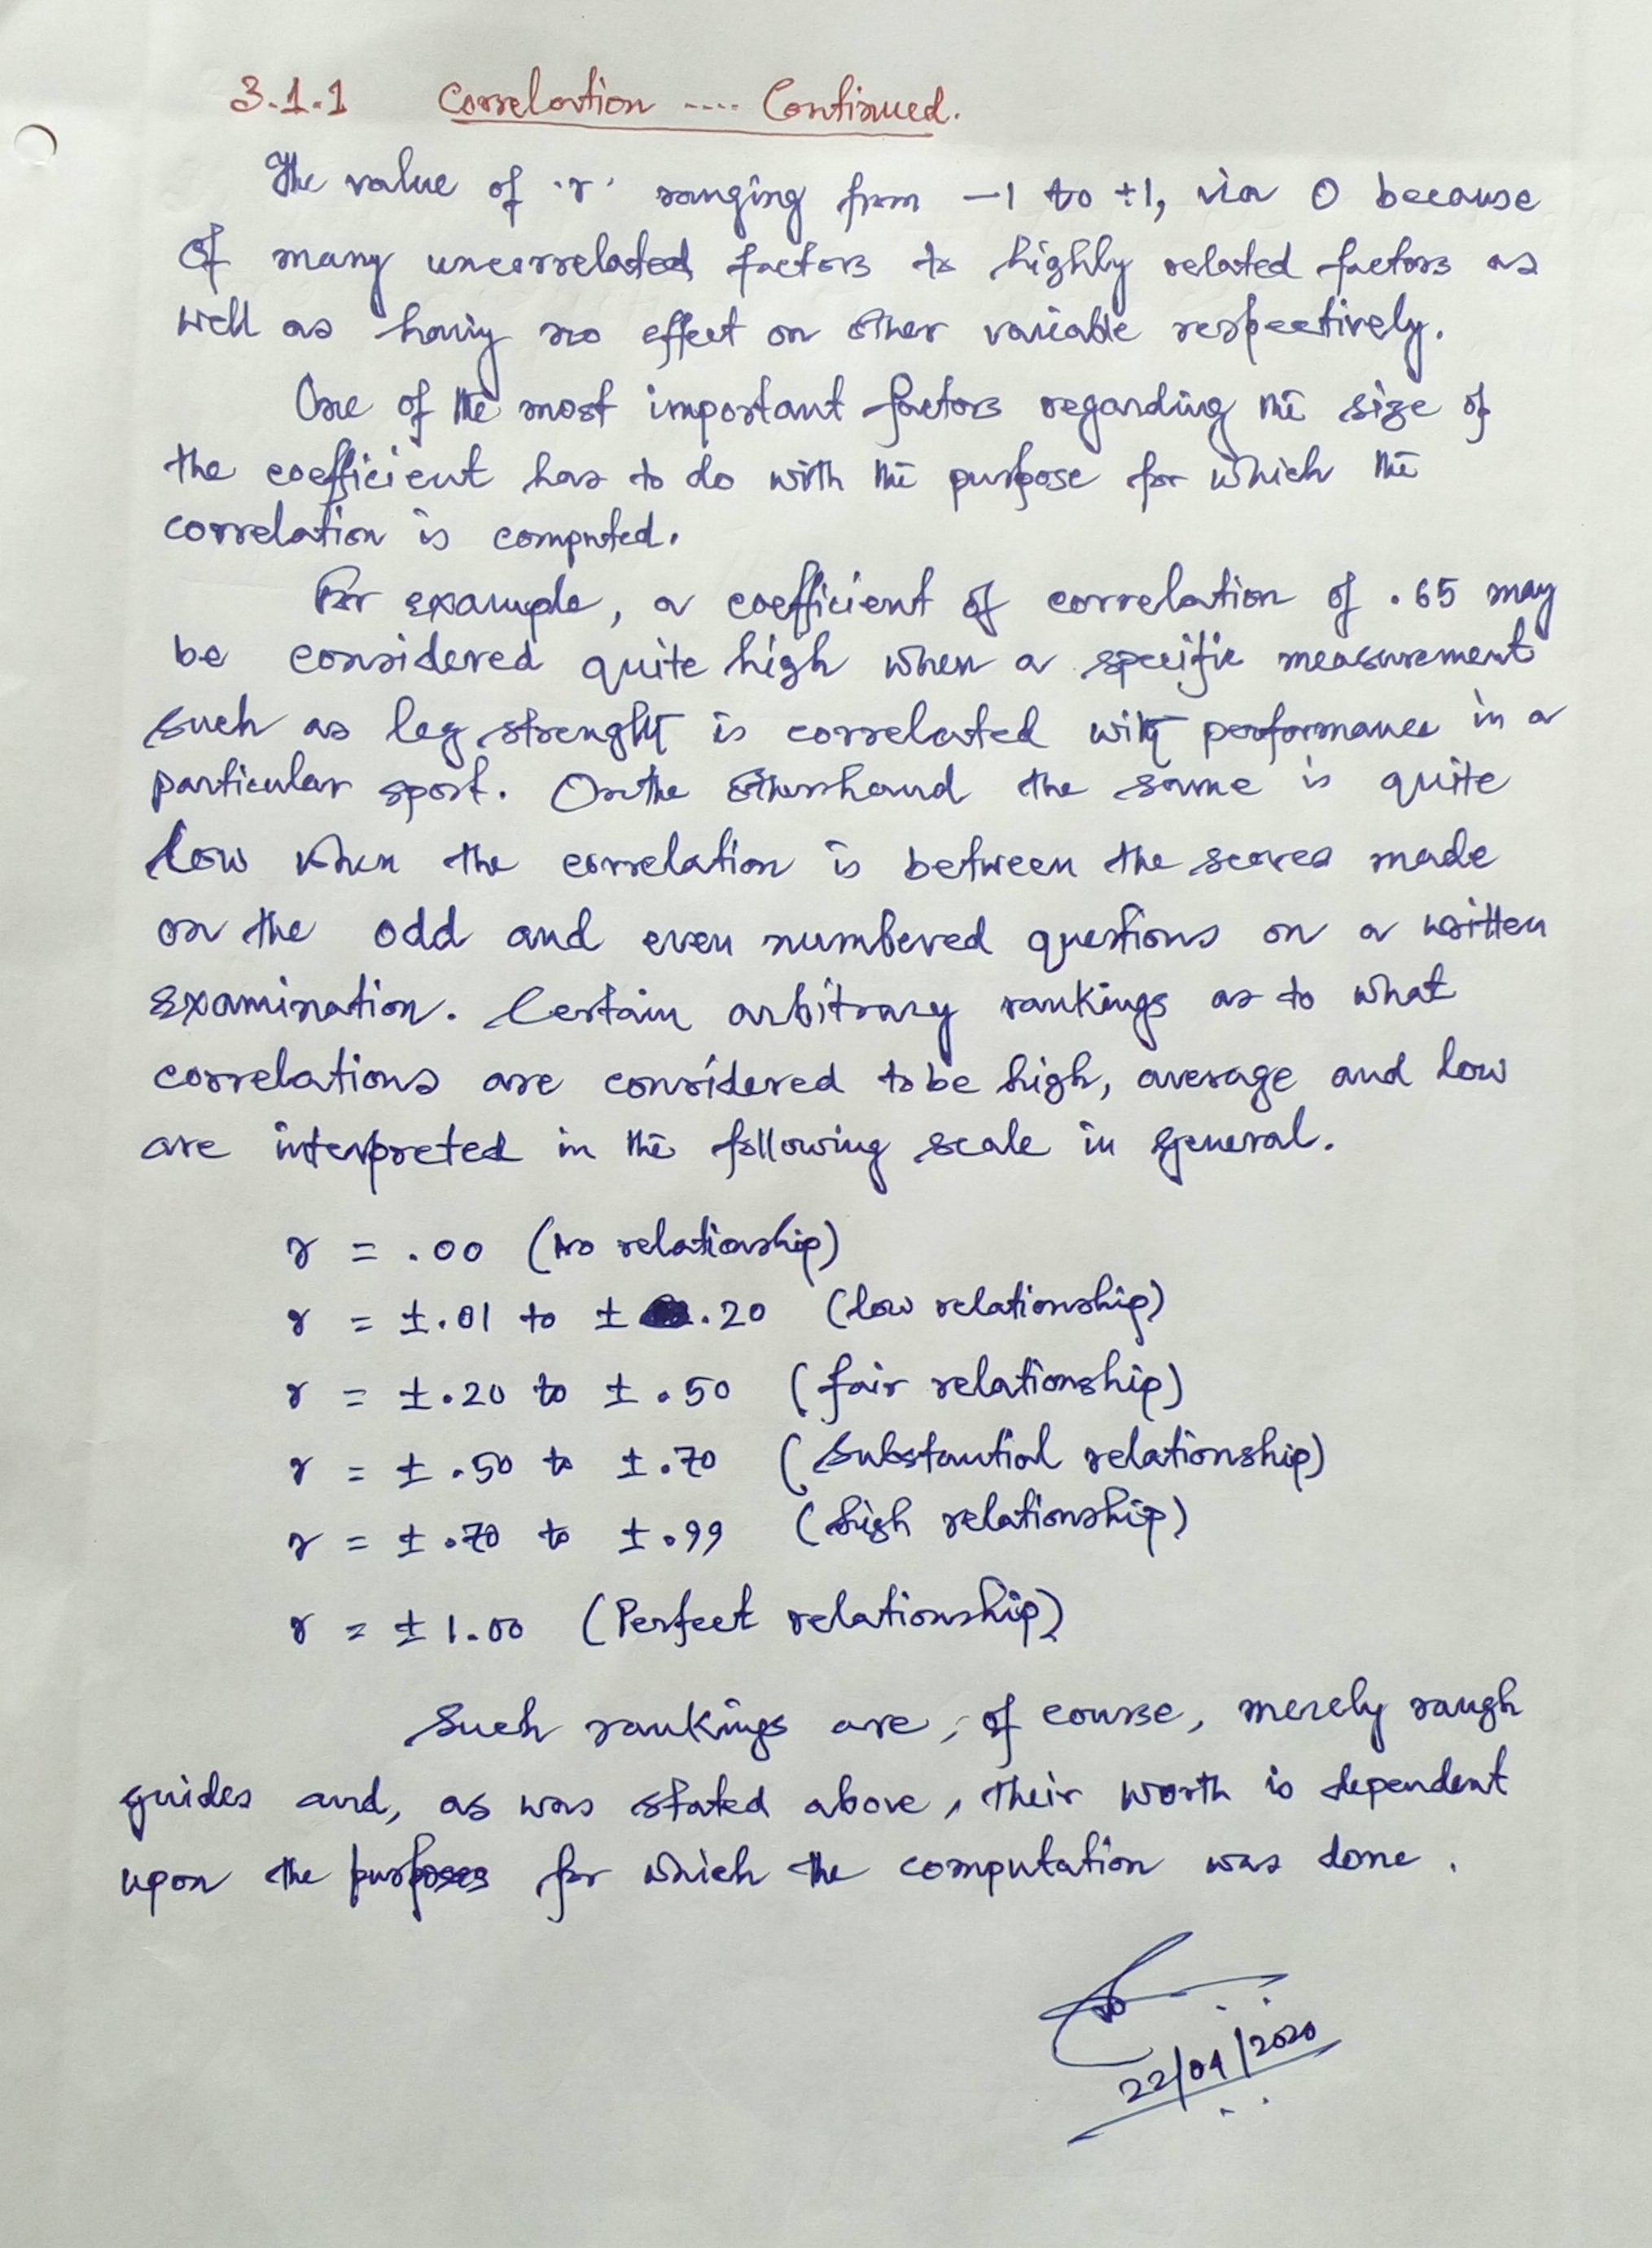 3.1.1 Correlation .... Continued.
The value of 'r' ranging from -1 to +1, via 0 because
of many uncorrelated factors to highly related factors as
well as having no effect on other variable respectively.
One of the most important factors regarding the size of
the coefficient has to do with the purpose for which the
correlation is computed.
For example, a coefficient of correlation of .65 may
be considered quite high when a specific measurement
such as leg strenght is correlated with performance in a
particular sport. On the otherhand the same is quite
low when the correlation is between the scores made
on the odd and even numbered questions on a written
examination. Certain arbitrary rankings as to what
correlations are considered to be high, average and low
are interpreted in the following scale in general.
r = .00 (no relationship)
r = ±.01 to ± .20 (low relationship)
r = ±.20 to ±.50 (fair relationship)
r = ±.50 to ±.70 (substantial relationship)
r = ±.70 to ±.99 (high relationship)
r = ±1.00 (Perfect relationship)
Such rankings are, of course, merely rough
guides and, as was stated above, their worth is dependent
upon the purposes for which the computation was done.
22/04/2020